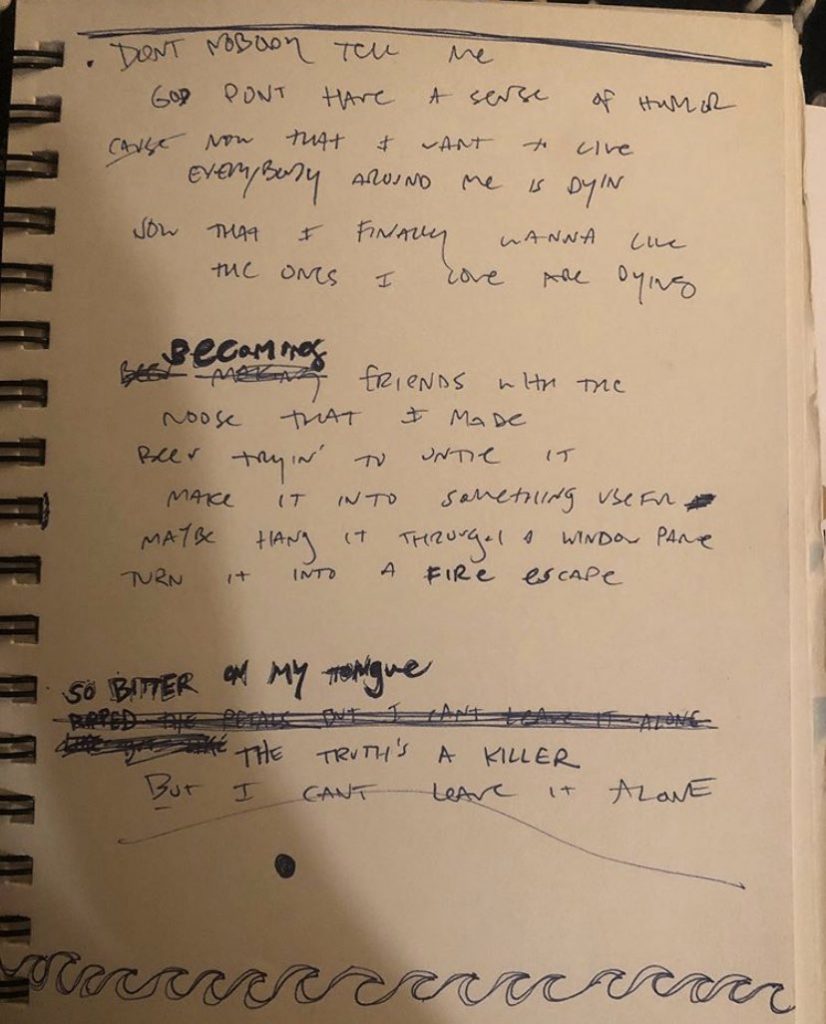 . DONT NOBODY TELL ME
GOD DONT HAVE A SENSE OF HUMOR
CAUSE NOW THAT I WANT TO LIVE
EVERYBODY AROUND ME IS DYIN
NOW THAT I FINALLY WANNA LIVE
THE ONES I LOVE ARE DYING
BECOMING
BEEN MAKING FRIENDS WITH THE
NOOSE THAT I MADE
BEEN TRYIN' TO UNTIE IT
MAKE IT INTO SOMETHING USEFUL
MAYBE HANG IT THROUGH A WINDOW PANE
TURN IT INTO A FIRE ESCAPE
SO BITTER ON MY TONGUE
RIPPED THE PETALS BUT I CANT LEAVE IT ALONE
THE TRUTH'S A KILLER
BUT I CANT LEAVE IT ALONE